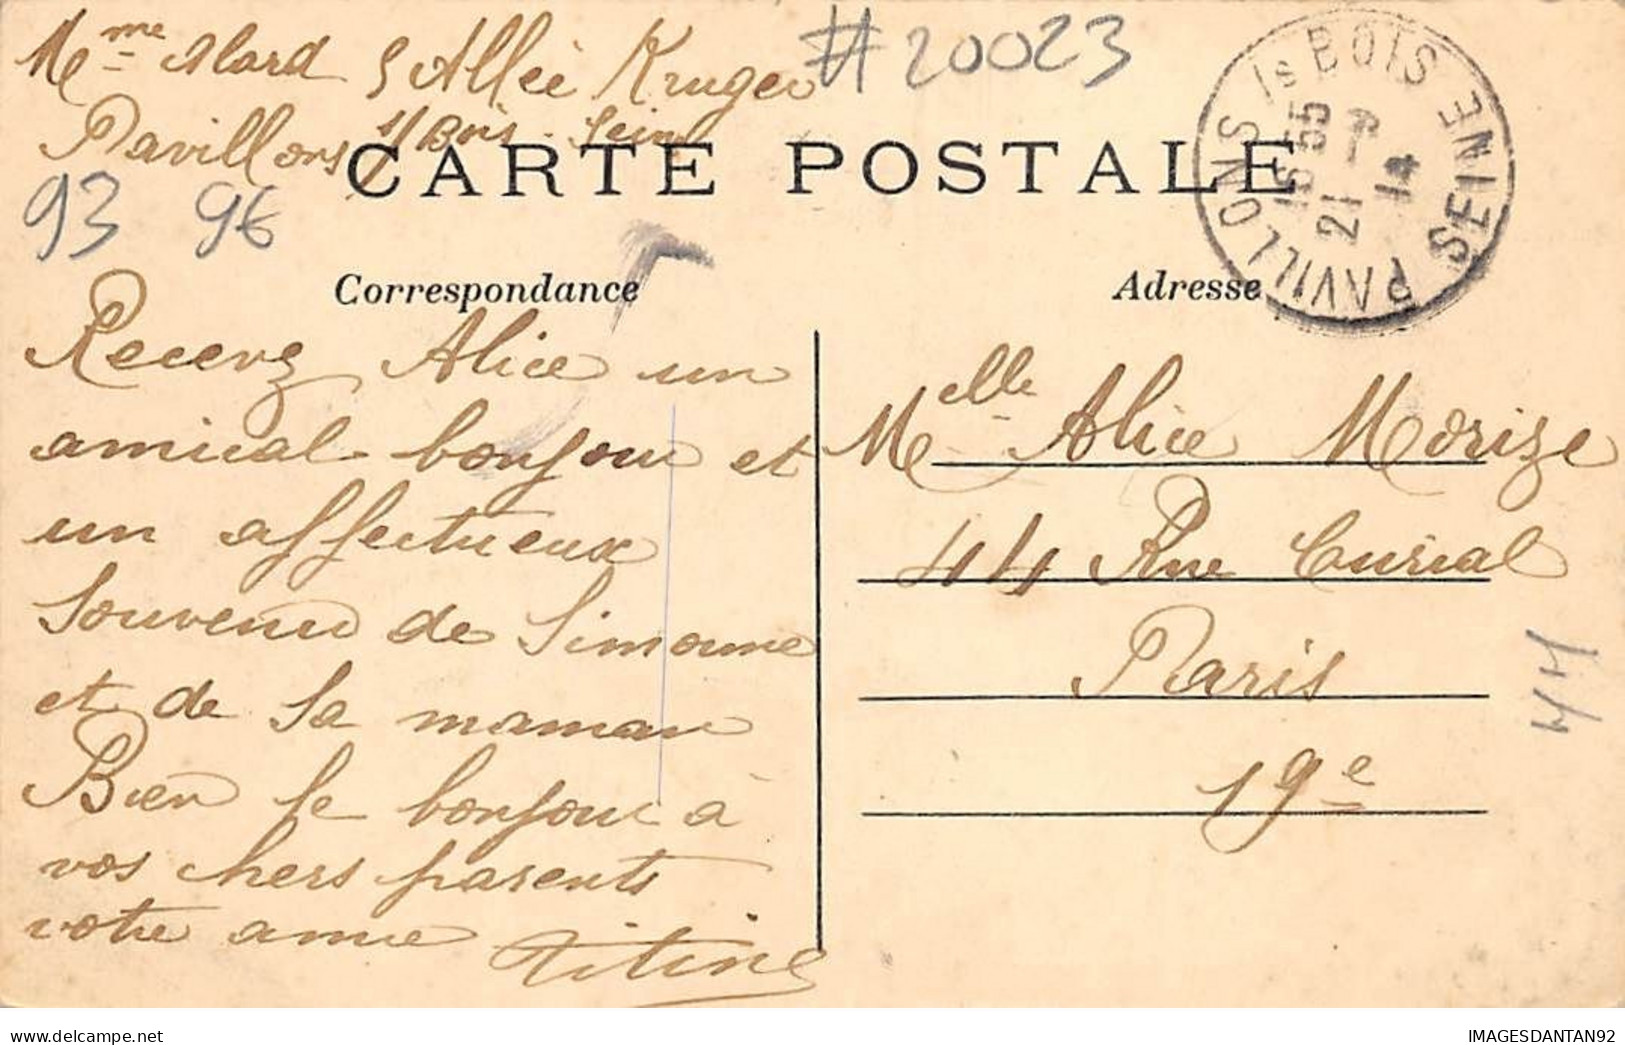 Mme Alard 5 Allée Kruger
Pavillons s/ Bois. Seine
# 20023
CARTE POSTALE
93 96
PAVILLONS Is BOIS SEINE
16 55
21 - 9
14
Correspondance
Adresse
Recevez Alice un
amical bonjour et
un affectueux
Souvenir de Simonne
et de Sa maman
Bien le bonjour à
vos chers parents
votre amie Titine
Melle Alice Morize
44 Rue Curial
Paris
19e
44
delcampe.net
IMAGESDANTAN92